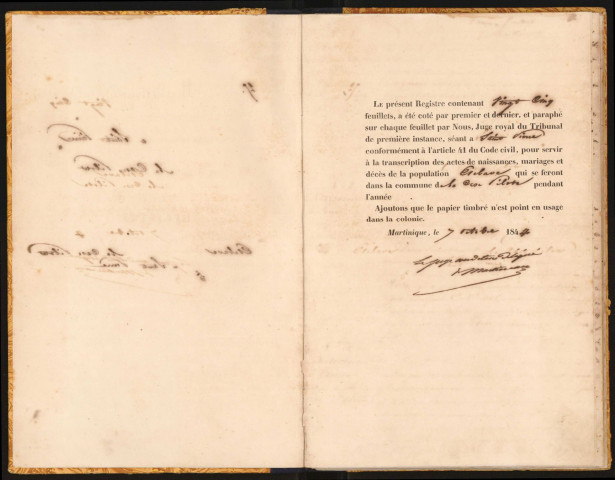 LE présent Registre contenant Vingt Cinq
feuillets, a été coté par premier et dernier, et paraphé
sur chaque feuillet par Nous, Juge royal du Tribunal
de première instance, séant à Saint Pierre
conformément à l'article 41 du Code civil, pour servir
à la transcription des actes de naissances, mariages et
décès de la population Esclave qui se feront
dans la commune de pendant
l'année
Ajoutons que le papier timbré n'est point en usage
dans la colonie.
Martinique, le 7 octobre 1844
Le juge auditeur délégué